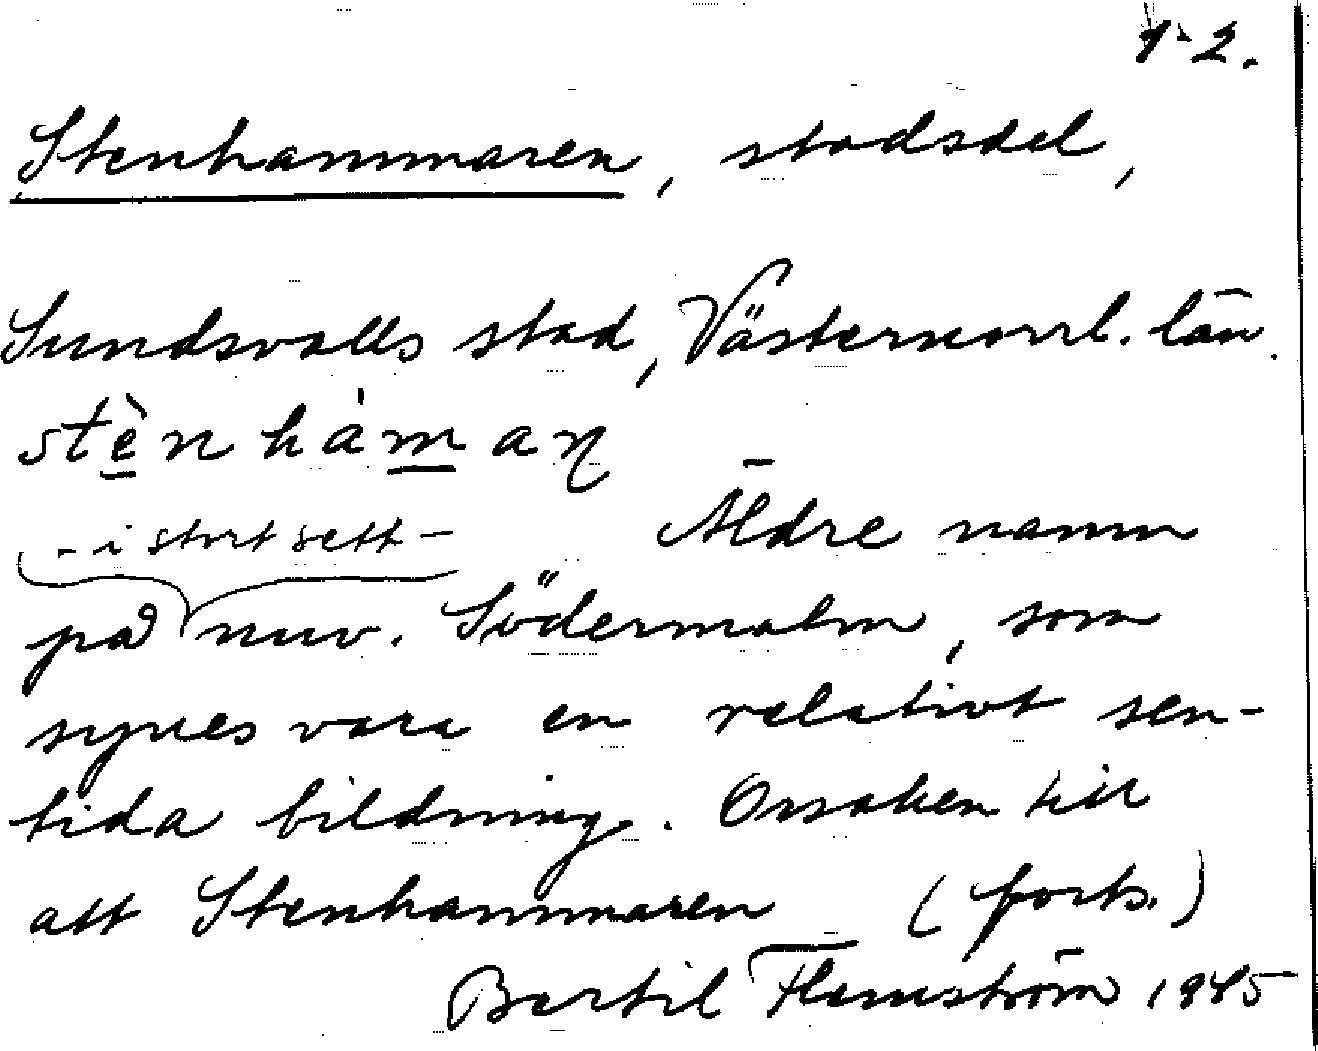 1-2.
Stenhammaren, stadsdel,
Sundsvalls stad, Västernorrl. län.
stè̱nhàm̱aṇ
- i stort sett -
Äldre namn
på nuv. Södermalm, som
synes vara en relativt sen-
tida bildning. Orsaken till
att Stenhammaren (forts.)
Bertil Flemström 1945